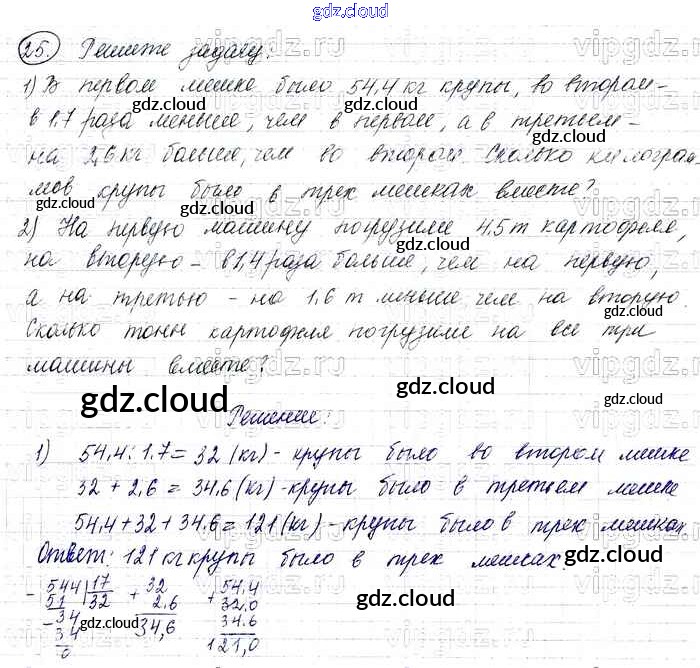 gdz.cloud
25. Решите задачу:
1) В первом мешке было 54,4 кг крупы, во втором –
в 1,7 раза меньше, чем в первом, а в третьем –
на 2,6 кг больше, чем во втором. Сколько килограм-
мов крупы было в трех мешках вместе?
2) На первую машину погрузили 4,5 т картофеля,
на вторую – в 1,4 раза больше, чем на первую,
а на третью – на 1,6 т меньше, чем на вторую.
Сколько тонн картофеля погрузили на все три
машины вместе?
gdz.cloud
Решение:
1) 54,4 : 1,7 = 32 (кг) - крупы было во втором мешке
32 + 2,6 = 34,6 (кг) - крупы было в третьем мешке
54,4 + 32 + 34,6 = 121 (кг) - крупы было в трех мешках
Ответ: 121 кг крупы было в трех мешках.
- 544 | 17 + 32 + 54,4
51 32 2,6 32,0
- 34 34,6 34,6
34 121,0
0